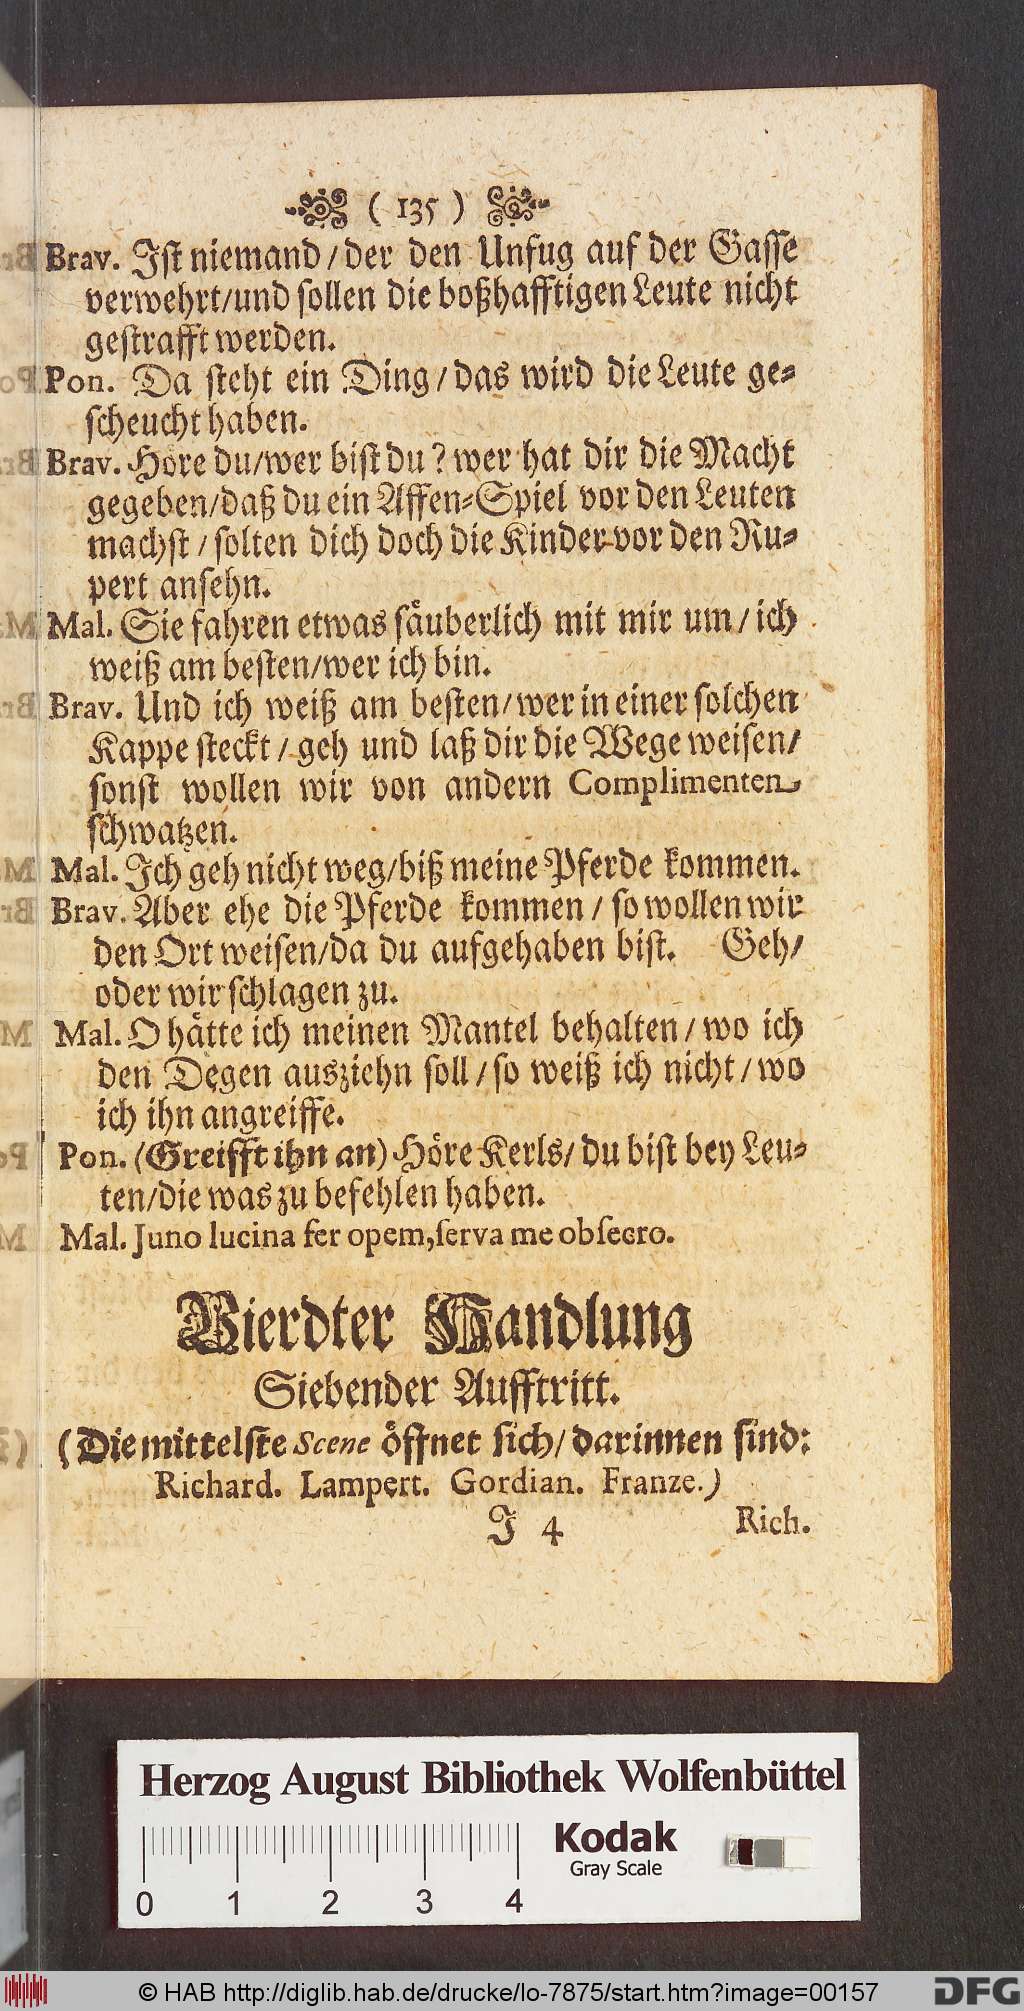 ( 135 )
Brav. Ist niemand / der den Unfug auf der Gasse
verwehrt/und sollen die boßhafftigen Leute nicht
gestrafft werden.
Pon. Da steht ein Ding / das wird die Leute ge-
scheucht haben.
Brav. Höre du/wer bist du? wer hat dir die Macht
gegeben/daß du ein Affen-Spiel vor den Leuten
machst / solten dich doch die Kinder vor den Ru-
pert ansehn.
Mal. Sie fahren etwas säuberlich mit mir um / ich
weiß am besten/wer ich bin.
Brav. Und ich weiß am besten/wer in einer solchen
Kappe steckt / geh und laß dir die Wege weisen/
sonst wollen wir von andern Complimenten
schwatzen.
Mal. Ich geh nicht weg/biß meine Pferde kommen.
Brav. Aber ehe die Pferde kommen / so wollen wir
den Ort weisen/da du aufgehaben bist. Geh/
oder wir schlagen zu.
Mal. O hätte ich meinen Mantel behalten / wo ich
den Degen ausziehn soll / so weiß ich nicht / wo
ich ihn angreiffe.
Pon. (Greifft ihn an) Höre Kerls/ du bist bey Leu-
ten/die was zu befehlen haben.
Mal. Juno lucina fer opem,serva me obsecro.
Vierdter Handlung
Siebender Aufftritt.
(Die mittelste Scene öffnet sich/ darinnen sind:
Richard. Lampert. Gordian. Franze.)
J 4 Rich.
Herzog August Bibliothek Wolfenbüttel
Kodak
Gray Scale
0 1 2 3 4
© HAB http://diglib.hab.de/drucke/lo-7875/start.htm?image=00157
DFG